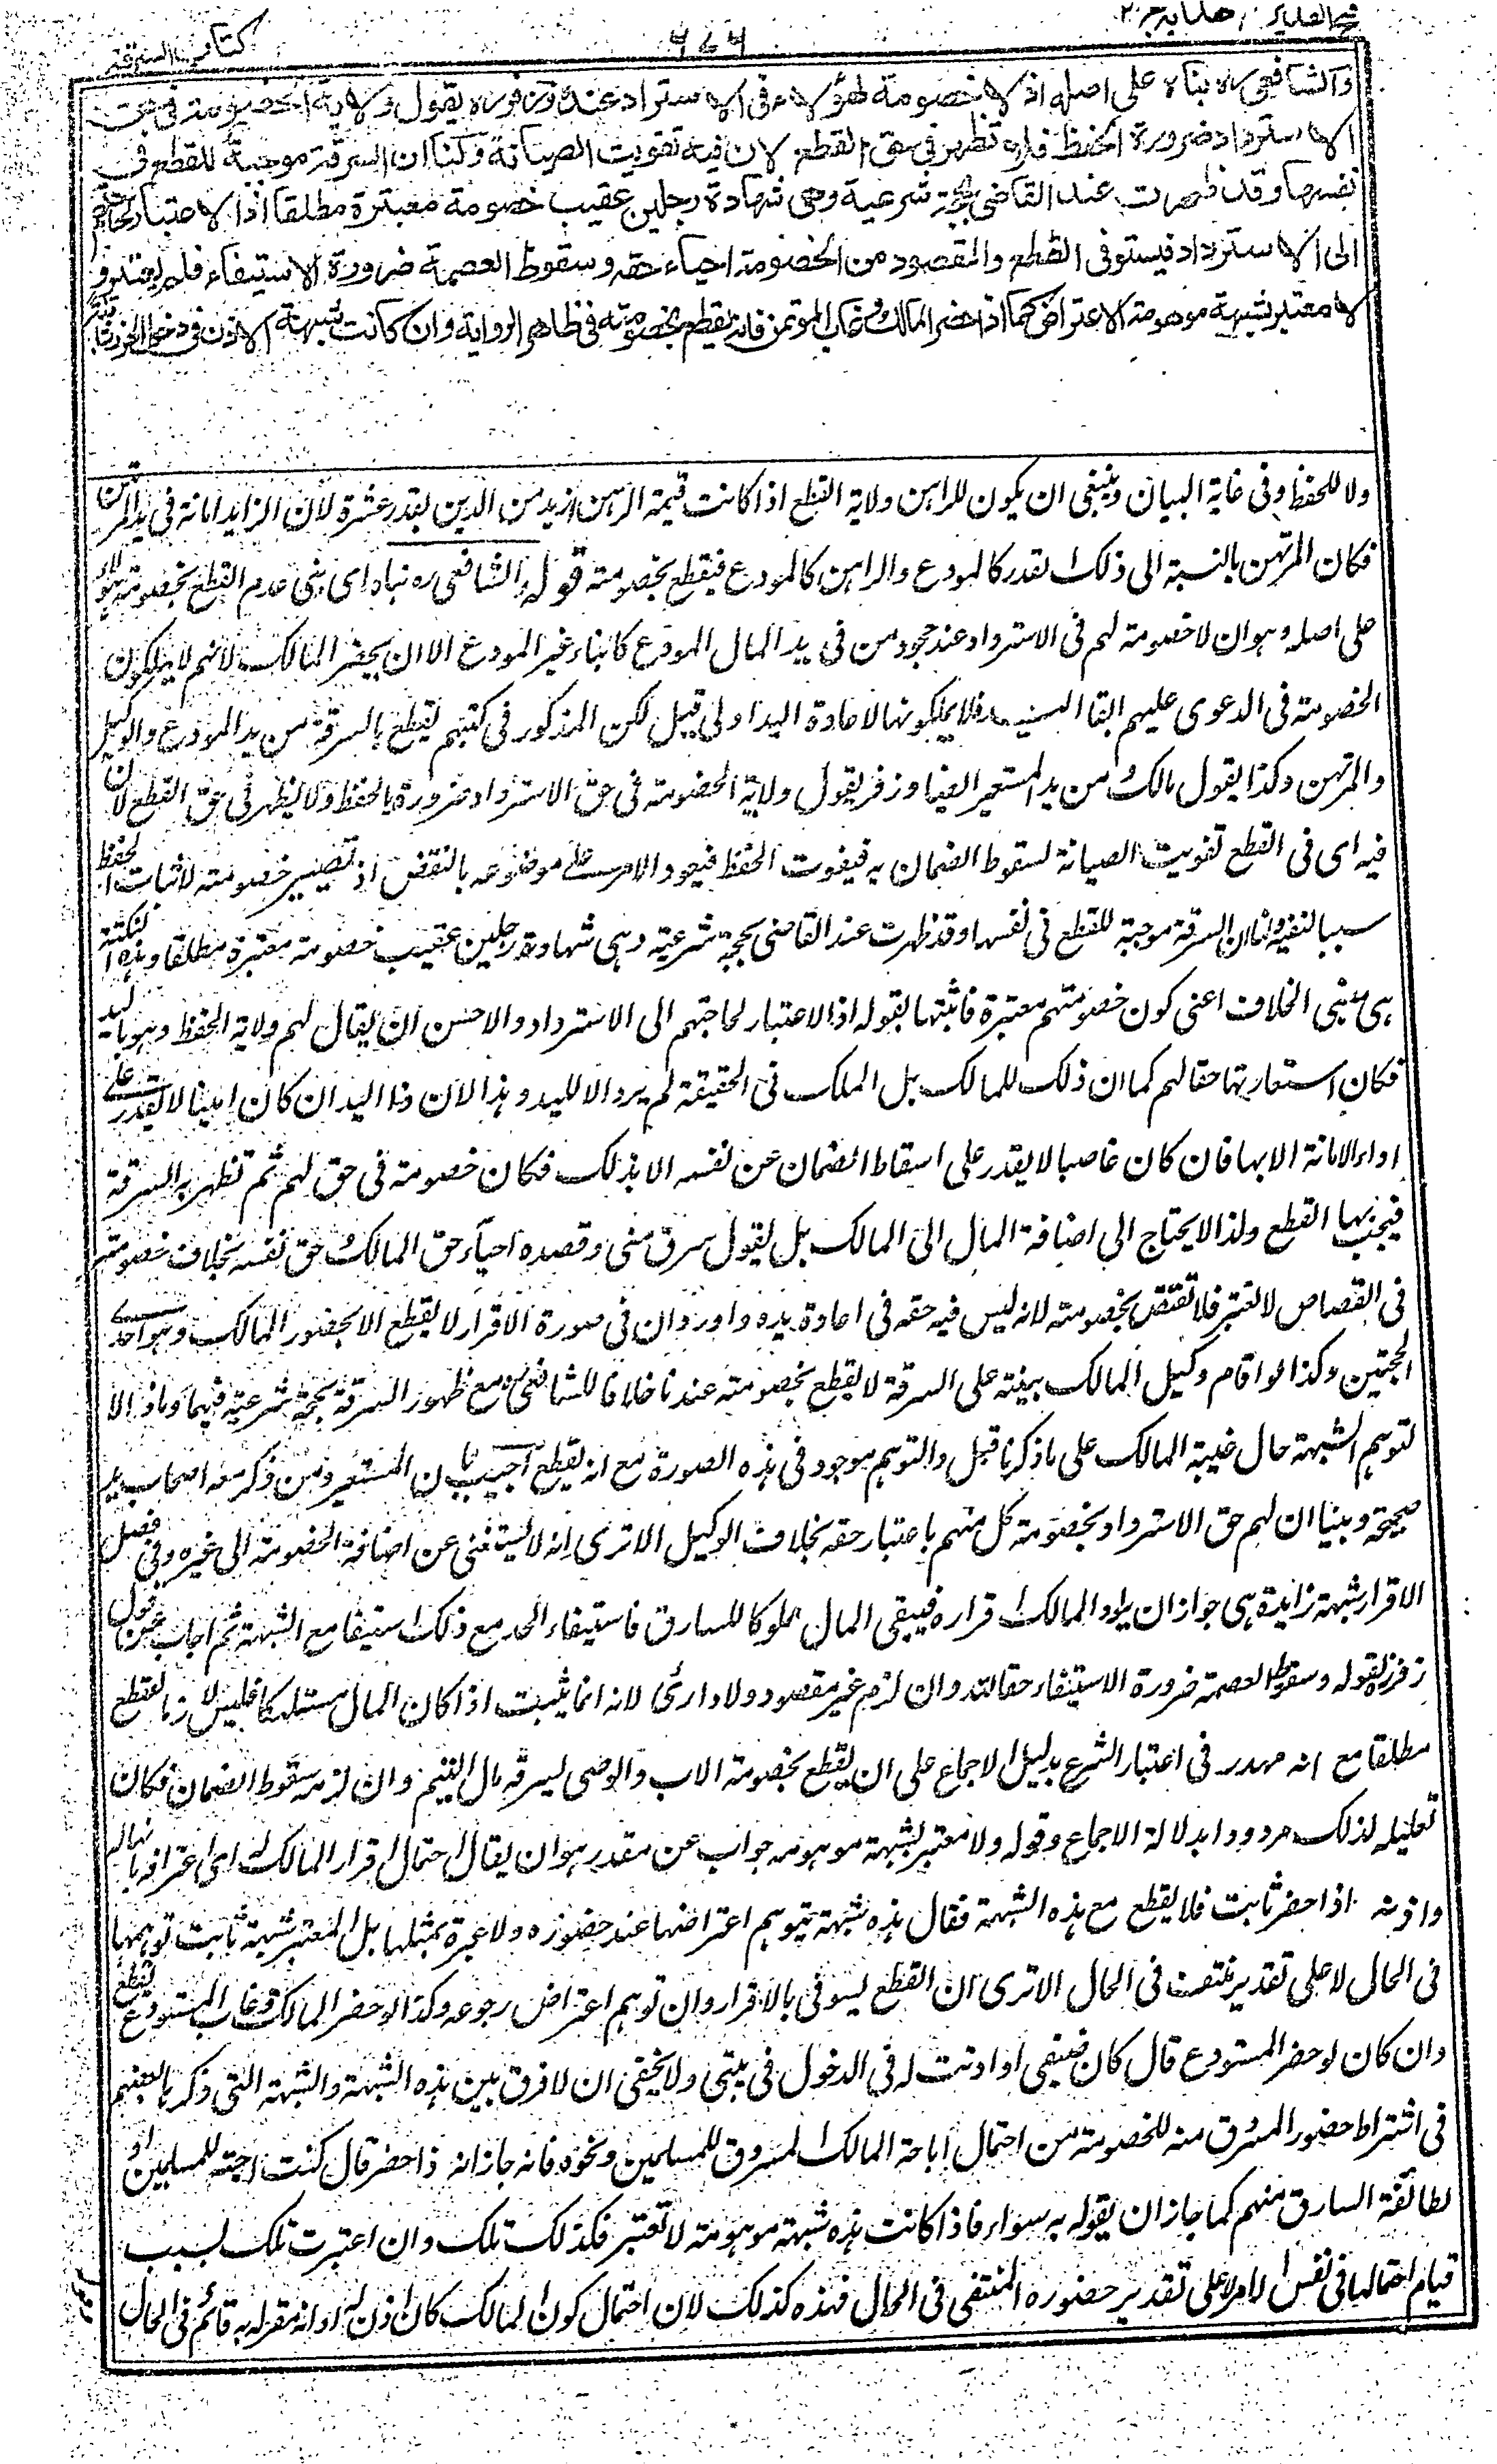 فتح القدير هدايه جـ٢
كتاب السرقة
والشافعى ره بناه على اصله اذ لا خصومة لهؤلاء فى الاسترداد عنده وزفر ره يقول ولاية الخصومة فى حق
الاسترداد ضرورة الحفظ فلا تظهر فى حق القطع لان فيه تفويت الصيانة ولنا ان السرقة موجبة للقطع فى
نفسها وقد ظهرت عند القاضى بحجة شرعية وهى شهادة رجلين عقيب خصومة معتبرة مطلقا اذ الاعتبار لحاجتهم
الى الاسترداد فيستوفى القطع والمقصود من الخصومة احياء حقه وسقوط العصمة ضرورة الاستيفاء فلم يعتبر و
لا معتبر بشبهة موهومة الاعتراض كما اذا حضر المالك وغاب المؤتمن فانه يقطع بخصومته فى ظاهر الرواية وان كانت شبهة الاذن فى دخول الحرز ثابتة
ولا للحفظ وفى غاية البيان وينبغى ان يكون للراهن ولاية القطع اذا كانت قيمة الرهن ازيد من الدين بقدر عشرة لان الزايد امانة فى يد المرتهن
فكان المرتهن بالنسبة الى ذلك القدر كالمودع والراهن كالمودع فيقطع بخصومته قوله والشافعى ره بناه اى بنى عدم القطع بخصومة هؤلاء
على اصله وهو ان لا خصومة لهم فى الاسترداد عند جحود من فى يد المال المودع كابناء غير المودع الا ان يحضر المالك لانهم لا يملكون
الخصومة فى الدعوى عليهم ابقاء اليد فلا يملكونها لاعادة اليد اولى قيل لكن المذكور فى كتبهم يقطع بالسرقة من يد المودع والوكيل
والمرتهن وكذا يقول مالك من يد المستعير ايضا وزفر يقول ولاية الخصومة فى حق الاسترداد ضرورة الحفظ ولا يظهر فى حق القطع لان
فيه اى فى القطع تفويت الصيانة لسقوط الضمان به فيفوت الحفظ فيعود الامر على موضوعه بالنقض اذ تصير خصومته لاثبات الحفظ
سببا لنفيه ولنا ان السرقة موجبة للقطع فى نفسها وقد ظهرت عند القاضى بحجة شرعية وهى شهادة رجلين عقيب خصومة معتبرة مطلقا وهذه النكتة
هى مبنى الخلاف اعنى كون خصومتهم معتبرة فاثبتها بقوله اذ الاعتبار لحاجتهم الى الاسترداد والاحسن ان يقال لهم ولاية الحفظ وهو باليد
فكان استعادتها حقا لهم كما ان ذلك للمالك بل الملك فى الحقيقة لم يرد الا لليد وهذا لان ذا اليد ان كان امينا لا يقدر على
اداء الامانة الا بها فان كان غاصبا لا يقدر على اسقاط الضمان عن نفسه الا بذلك فكان خصومة فى حق لهم ثم تظهر به السرقة
فيجب بها القطع ولذا لا يحتاج الى اضافة المال الى المالك بل يقول سرق منى وقصده احياء حق المالك وحق نفسه بخلاف خصومته
فى القصاص لا تعتبر فلا تقتص بخصومته لانه ليس فيه حقه فى اعادة يده واورد ان فى صورة الاقرار لا يقطع الا بحضور المالك وهو احدى
الحجتين وكذا لو اقام وكيل المالك بينة على السرقة لا يقطع بخصومته عندنا خلافا للشافعى ره مع ظهور السرقة بحجة شرعية فيهما وما ذاك الا
لتوهم الشبهة حال غيبة المالك على ما ذكرنا قبل والتوهم موجود فى هذه الصورة مع انه يقطع اجيب بان المستعير ومن ذكر معه اصحاب يد
صحيحة وبينا ان لهم حق الاسترداد بخصومة كل منهم باعتبار حقه بخلاف الوكيل الا ترى انه لا يستغنى عن اضافة الخصومة الى غيره وفى فصل
الاقرار شبهة زايدة هى جواز ان يرد المالك اقراره فيبقى المال مملوكا للسارق فاستيفاء الحد مع ذلك استيفاء مع الشبهة ثم اجاب عن قول
زفر بقوله وسقوط العصمة ضرورة الاستيفاء حقا لله وان لزم غير مقصود ولا دارئ لانه انما يثبت اذا كان المال مستهلكا فليس لازما للقطع
مطلقا مع انه مهدر فى اعتبار الشرع بدليل الاجماع على ان يقطع بخصومة الاب والوصى لسرقة مال اليتيم وان لزمه سقوط الضمان فكان
تعليله لذلك مردودا بدلالة الاجماع وقوله ولا معتبر بشبهة موهومة جواب عن مقدر هو ان يقال احتمال اقرار المالك له اى اعترافه بانها له
واذنه اذا حضر ثابت فلا يقطع مع هذه الشبهة فقال هذه شبهة يتوهم اعتراضها عند حضوره ولا عبرة بمثلها بل المعتبر شبهة ثابت توهمها
فى الحال لا على تقدير منتف فى الحال الا ترى ان القطع يستوفى بالاقرار وان توهم اعتراض رجوعه وكذا لو حضر المالك وغاب المستودع يقطع
وان كان لو حضر المستودع قال كان ضيفى او اذنت له فى الدخول فى بيتى ولا يخفى ان لا فرق بين هذه الشبهة والشبهة التى ذكرها بعضهم
فى اشتراط حضور المسروق منه للخصومة من احتمال اباحة المالك المسروق للمسلمين ونحوه فانه جاز انه اذا حضر قال كنت ابحته للمسلمين او
لطائفة السارق منهم كما جاز ان يقوله به سواء فاذا كانت هذه شبهة موهومة لا تعتبر فكذلك تلك وان اعتبرت تلك لسبب
قيام احتمالها فى نفس الامر لا على تقدير حضوره المنتفى فى الحال فهذه كذلك لان احتمال كون المالك كان اذن له او انه مقر له به قائم فى الحال